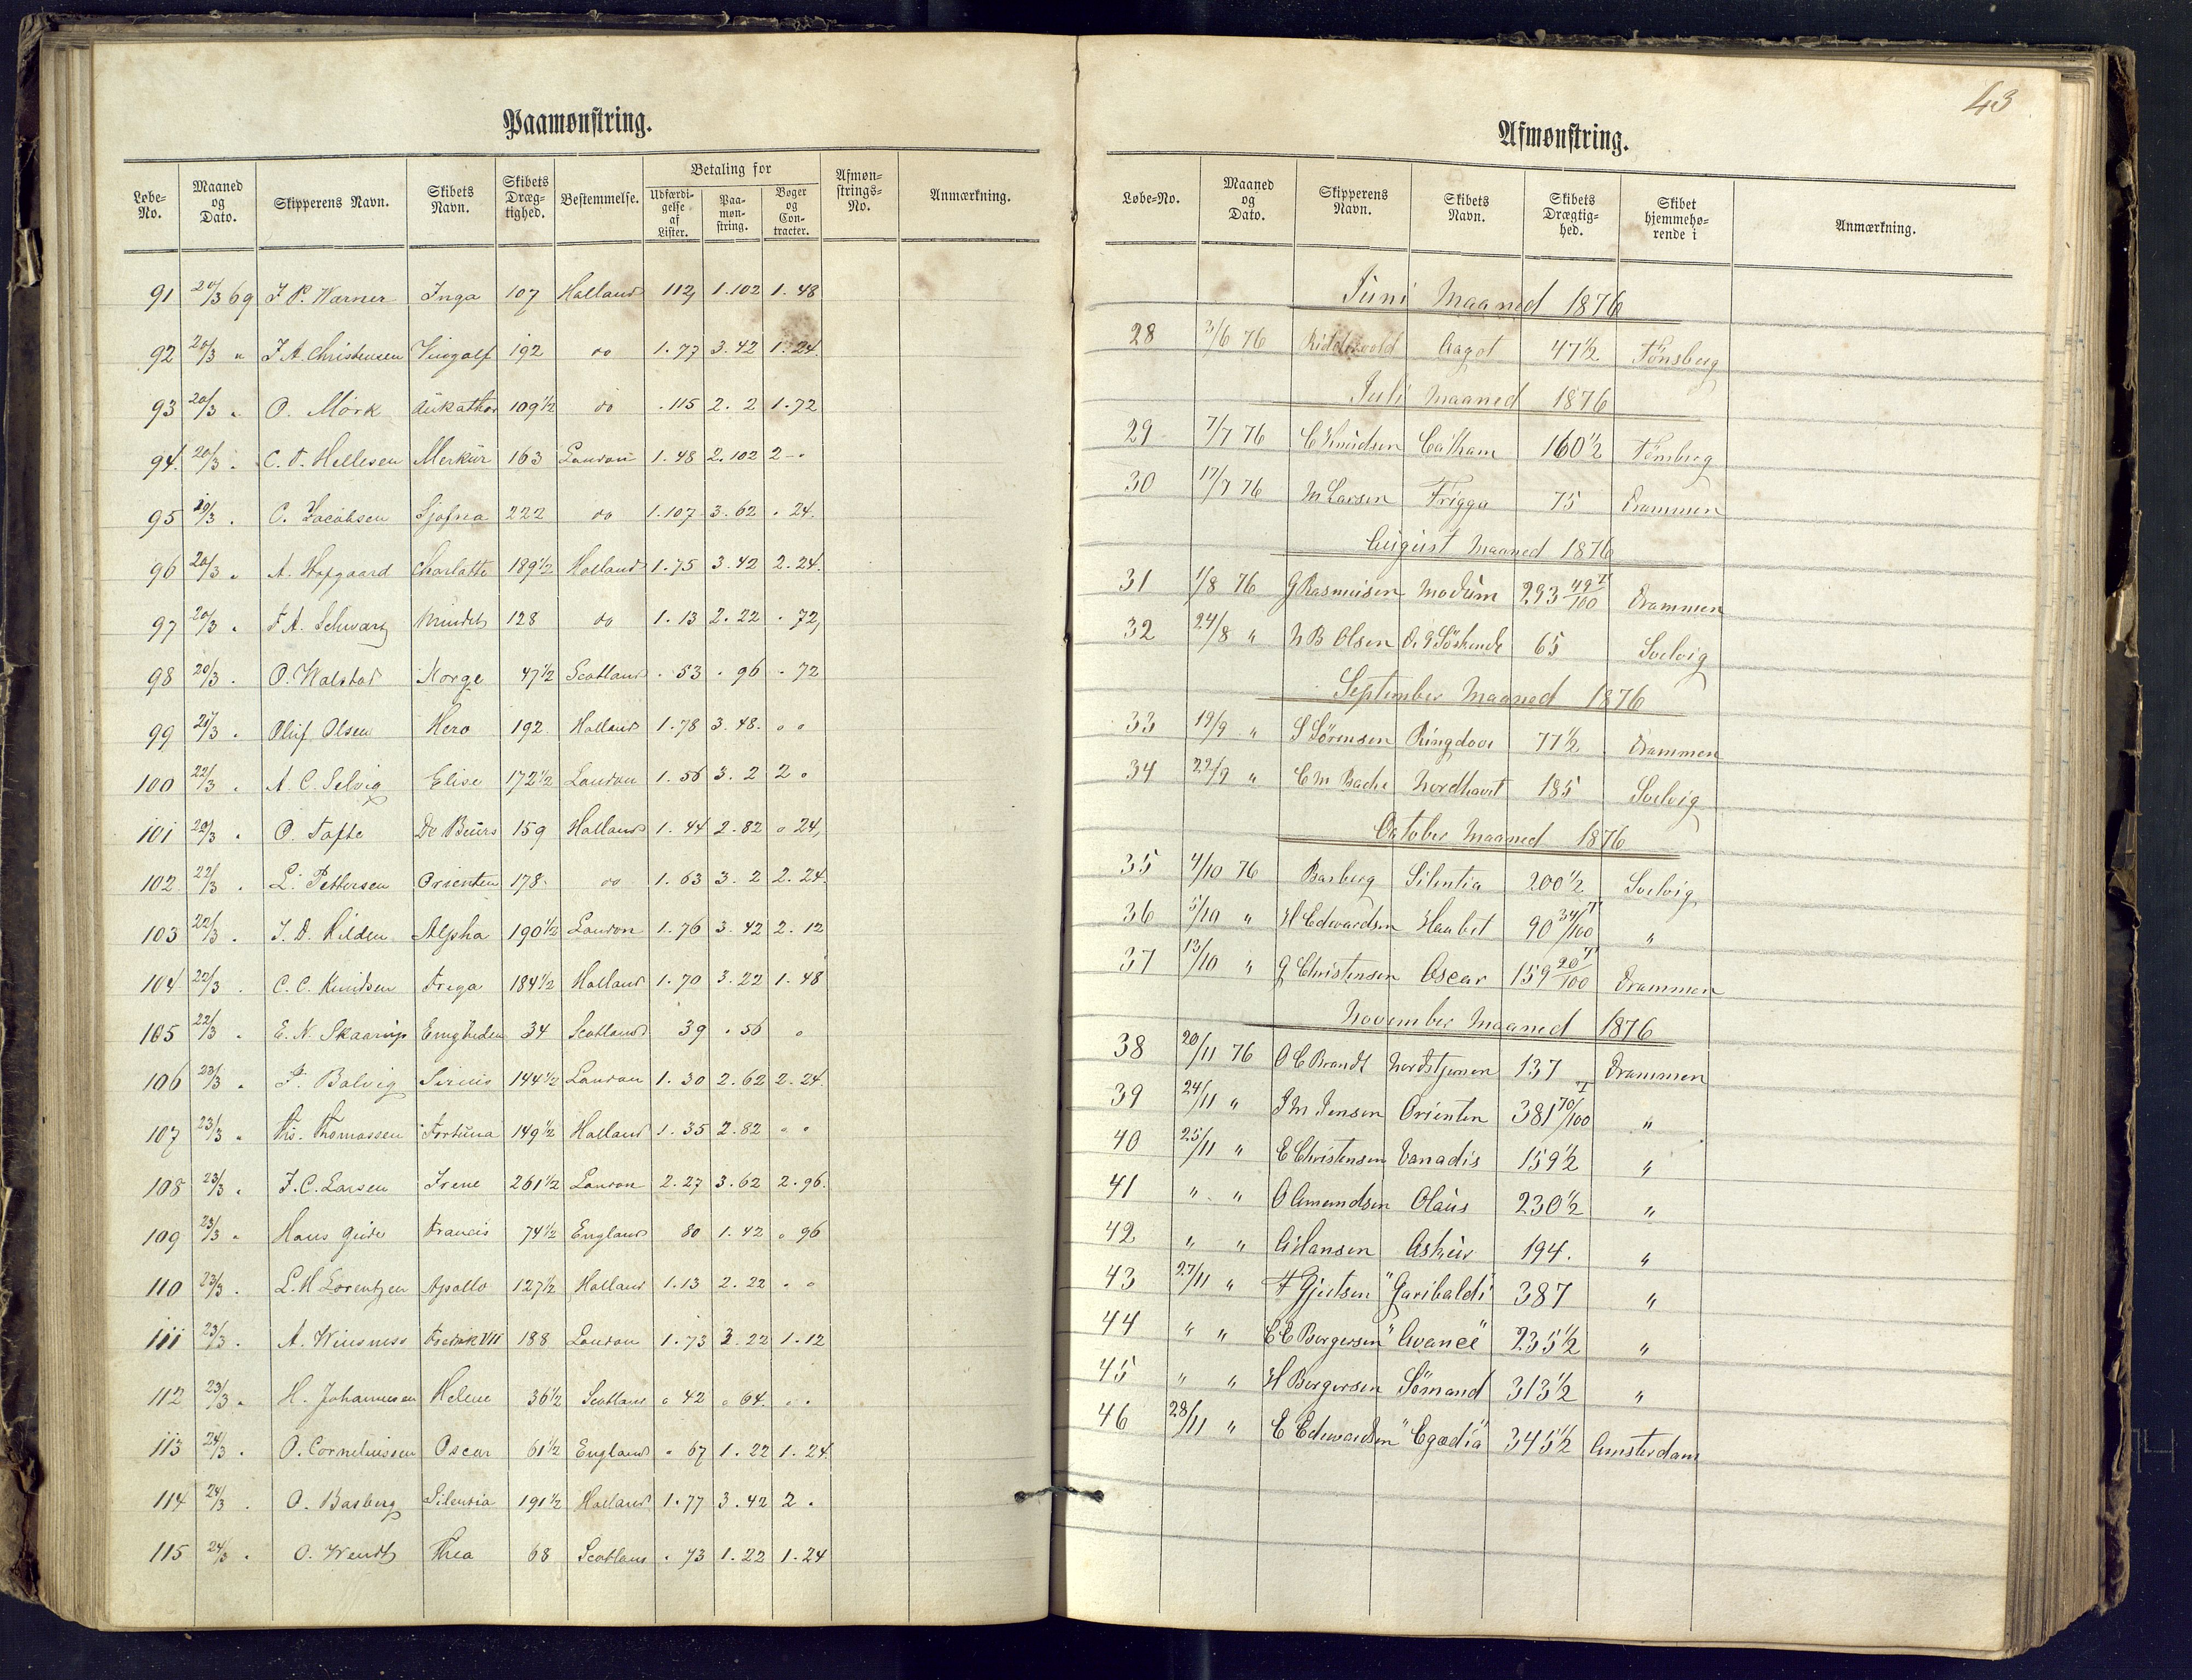 Paamønstring.
Løbe-No. | Maaned og Dato. | Skipperens Navn. | Skibets Navn. | Skibets Dræg-tighed. | Bestemmelse. | Betaling for | Udfærdi-gelse af Lister. | Paa-møn-string. | Bøger og Con-tracter. | Afmøn-strings-No. | Anmærkning.
91 20/3 69 J P. Warner Inga 107 Holland 112, 1.102 1. 48
92 20/3 " J A. Christensen Vingolf 192 do 1. 77 3. 42 1. 24.
93 20/3 " O. Mörk 109½ do .115 2. 2 1.72
94. 20/3 " C. T. Hellesen Merkür 163 London 1. 48 2. 102 2 - "
95 20/3 " C. Jacobsen Sjofna 222 do 1.107 3. 62 " 24.
96 20/3 " A. Hofgaard Charlotte 189½ Holland 1.75 3. 42 2. 24.
97 20/3 " F A. Schwartz Mindet 128 do 1. 13 2. 22 " 72,
98 20/3 " O. Walstad Norge 47½ Scotland " 53 " 96 " 72
99 20/3 " Oluf Olsen Hero 192. Holland 1. 78 3. 48. " "
100 22/3 " A. C. Selvig Elise 172½ London 1. 56 3. 2 2 "
101 22/3 " O. Tofte De Beurs 159 Holland 1. 44 2. 82 " 24,
102 22/3 " L. Pettersen Orienten 178. do 1. 63 3. 2 2. 24.
103 22/3 " J. D. Kilden Alpha 190½ London 1. 76 3. 42 2. 12
104 22/3 " C. C. Knudsen Freya 184½ Holland 1. 70 3. 22 1. 48
105 22/3 " E. N. Skaarup Enigheden 34 Scotland 39 " 56 "
106 23/3 " F. Bolvig Sirius 144½ London 1. 30 2. 62 2. 24.
107 23/3 " Ths. Thomassen Fortüna 149½ Holland 1. 35 2. 82 " "
108 23/3 " J. C. Larsen Irene 261½ London 2. 27 3. 62 2. 96.
109 23/3 " Hans Gude Francis 74½ England 80 1. 42 " 96
110 23/3 " L. H Lorentzen Apollo 127½ Holland 1. 13 2. 22 " "
111 23/3 " A. Wiesness Fredrik VII 188 London 1. 73 3. 22 1. 12
112 23/3 " H. Johannesen Helene 36½ Scotland " 42 " 64. " "
113 24/3 " O. Corneliussen Oscar 61½ England " 67 1. 22 1. 24.
114 24/3 " O. Basberg Silentia 191½ Holland 1. 77 3. 42 2 "
115 24/3 " O. Wendt Thea 68 Scotland " 73 1. 22 1. 24
43
Afmønstring.
Løbe-No. | Maaned og Dato. | Skipperens Navn. | Skibets Navn. | Skibets Drægtig-hed. | Skibet hjemmehø-rende i | Anmærkning.
Juni Maaned 1876
28 3/6 76 Riddervold Aagot 47½ Tönsberg
Juli Maaned 1876
29 7/7 76 C Knudsen Catham 160½ Tönsberg
30 17/7 76 M Larsen Frigga 75 Drammen
August Maaned 1876
31 1/8 76 G Rasmussen Modum 293 49/100 T Drammen
32 24/8 " N B Olsen De 9 Söskende 65 Svelvig
September Maaned 1876
33 19/9 " S Sörensen Ringdove 77½ Drammen
34 22/9 " C M Bache Nordhavet 185 Svelvig
October Maaned 1876
35 4/10 76 Basberg Silentia 200½ Svelvig
36 5/10 " H Edwardsen Haabet 90 34/100 T "
37 13/10 " G Christensen Oscar 159 20/100 T Drammen
November Maaned 1876
38 20/11 76 O C Brandt Nordstjernen 137 Drammen
39 24/11 " J M Jensen Orienten 381 70/100 T "
40 25/11 " E Christensen Vanadis 159½ "
41 " " O Amundsen Olaus 230½ "
42 " " A Hansen Askur 194. "
43 27/11 " F Gjertsen "Garibaldi" 387 "
44 " " C C Borgersen "Avance" 235½ "
45 " " H Borgersen Sömand 313½ "
46 28/11 " E Edwardsen "Egadia" 345½ Amsterdam